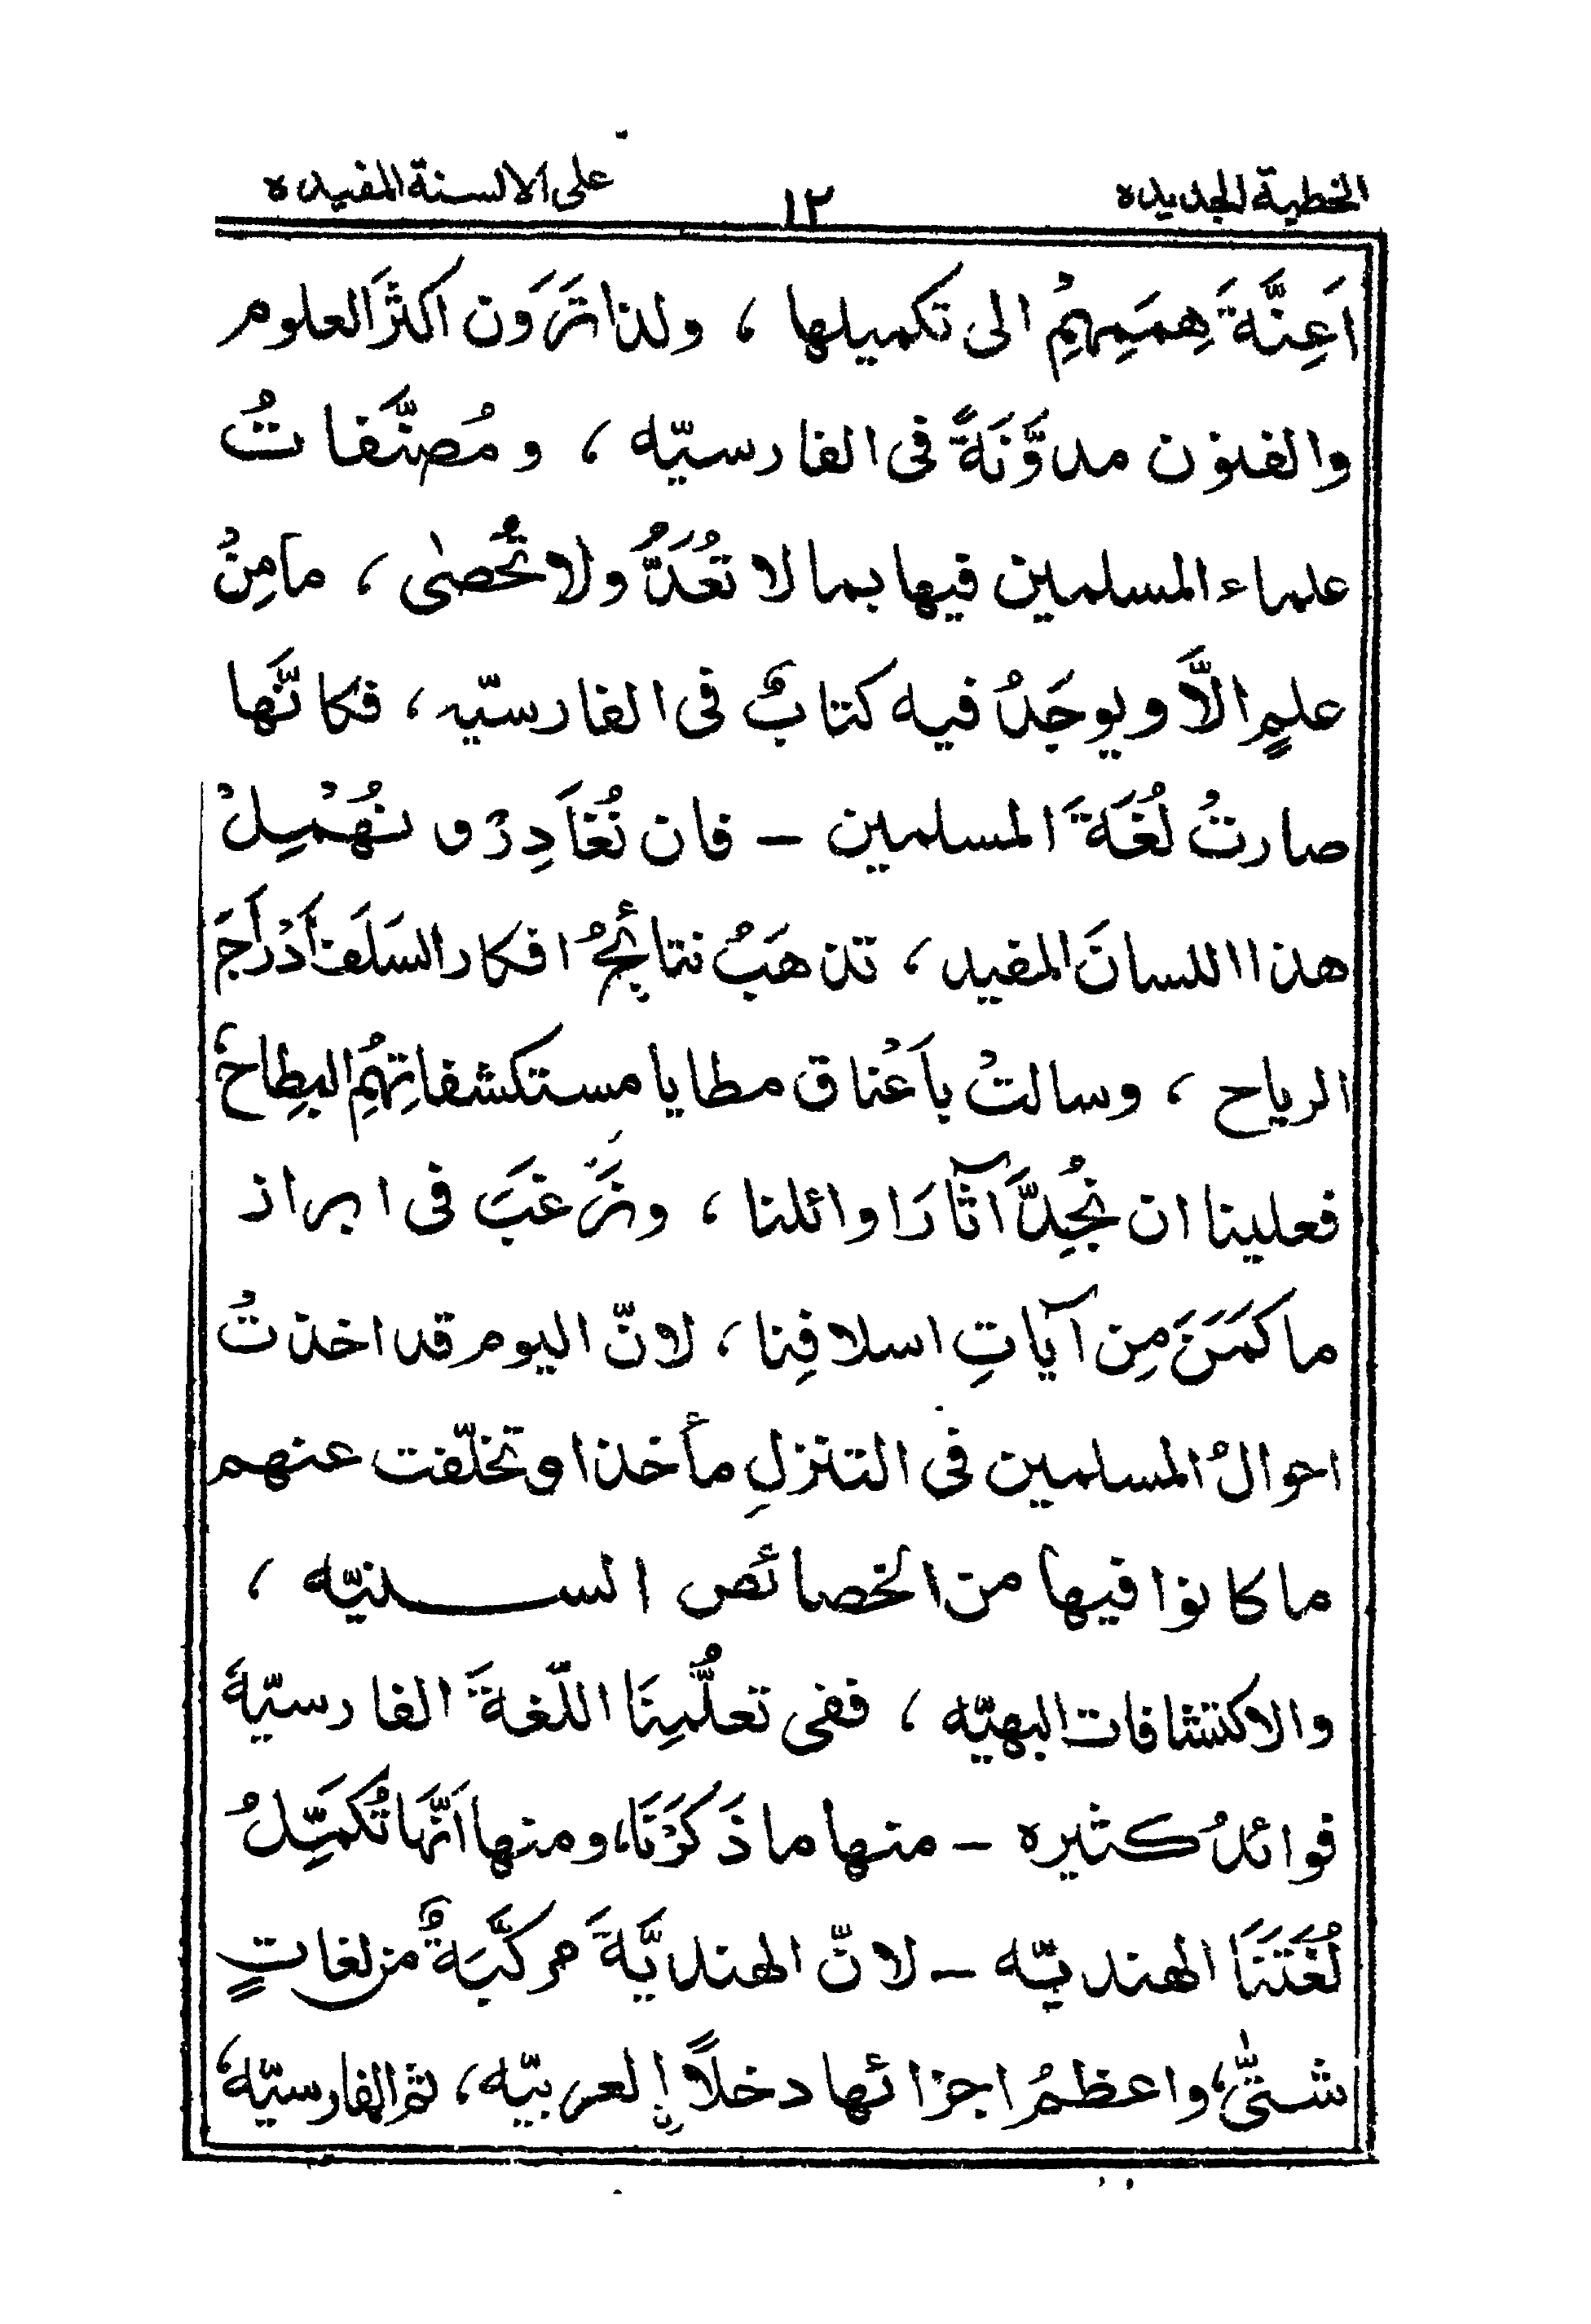 الخطبة الجديده ١٢ على الالسنة المفيده
اَعِنَّةَ هِمَمِهِمْ الى تكميلها ، ولذا تَرَوَن اكثرَ العلوم
والفنون مدوَّنَةً فى الفارسيّه ، ومُصنَّفاتُ
علماء المسلمين فيها بما لا تُعَدُّ ولا تُحصىٰ ، ما مِنْ
علمٍ الاَّ ويوجَدُ فيه كتابٌ فى الفارسيّه ، فكانَّها
صارتْ لُغَةَ المسلمين - فان نُغَادِرْ و نُهْمِلْ
هذا اللسانَ المفيد ، تذهَبُ نتائجُ افكار السَلَف أَدْرَاجَ
الرياح ، وسالتْ باَعْناق مطايا مستكشفاتِهِمْ البِطاح ،
فعلينا ان نُجِدَّ آثارَ اوائلنا ، ونَرغَبَ فى ابراز
ما كمَنَ مِن آيَاتِ اسلافِنا ، لانّ اليوم قد اخذتْ
احوالُ المسلمين فى التنزلِ مأخذا وتخلّفت عنهم
ما كانوا فيها من الخصائص السنيّه ،
والاكتشافات البهيّه ، ففى تعلُّمِنَا اللّغةَ الفارسيّةَ
فوائدُ كثيره - منها ما ذَكَرْنَا، ومنها اَنَّهَا تُكَمِّلُ
لُغَتَنَا الهنديّه - لانّ الهنديَّةَ مركَّبَةٌ من لغاتٍ
شتّٰى، واعظمُ اجزائها دخلاً العربيّه ، ثم الفارسيّه ،